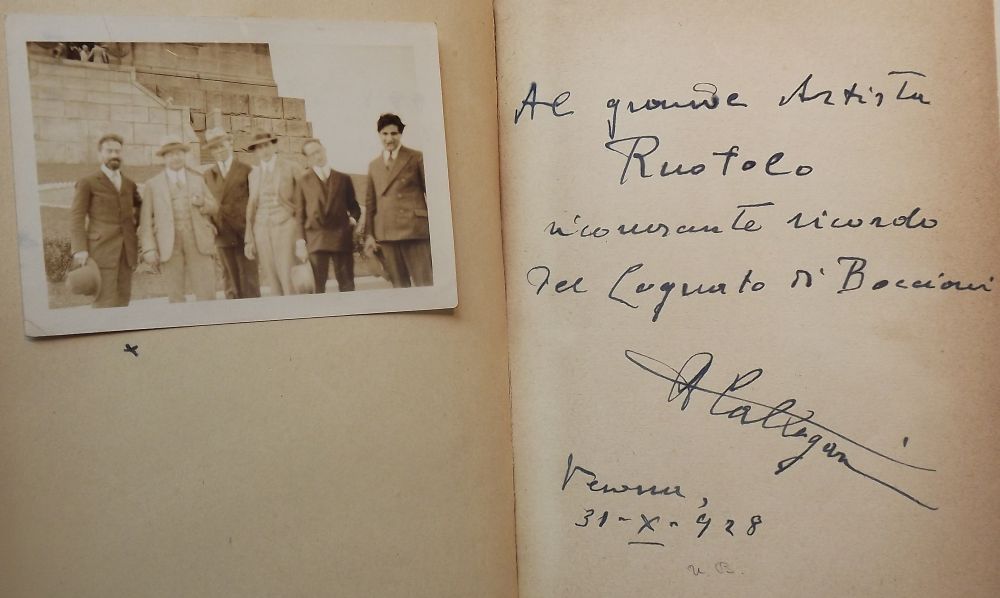 Al grande Artista
Ruotolo
riconoscente ricordo
del Cognato di Boccioni
Verona,
31-X-928